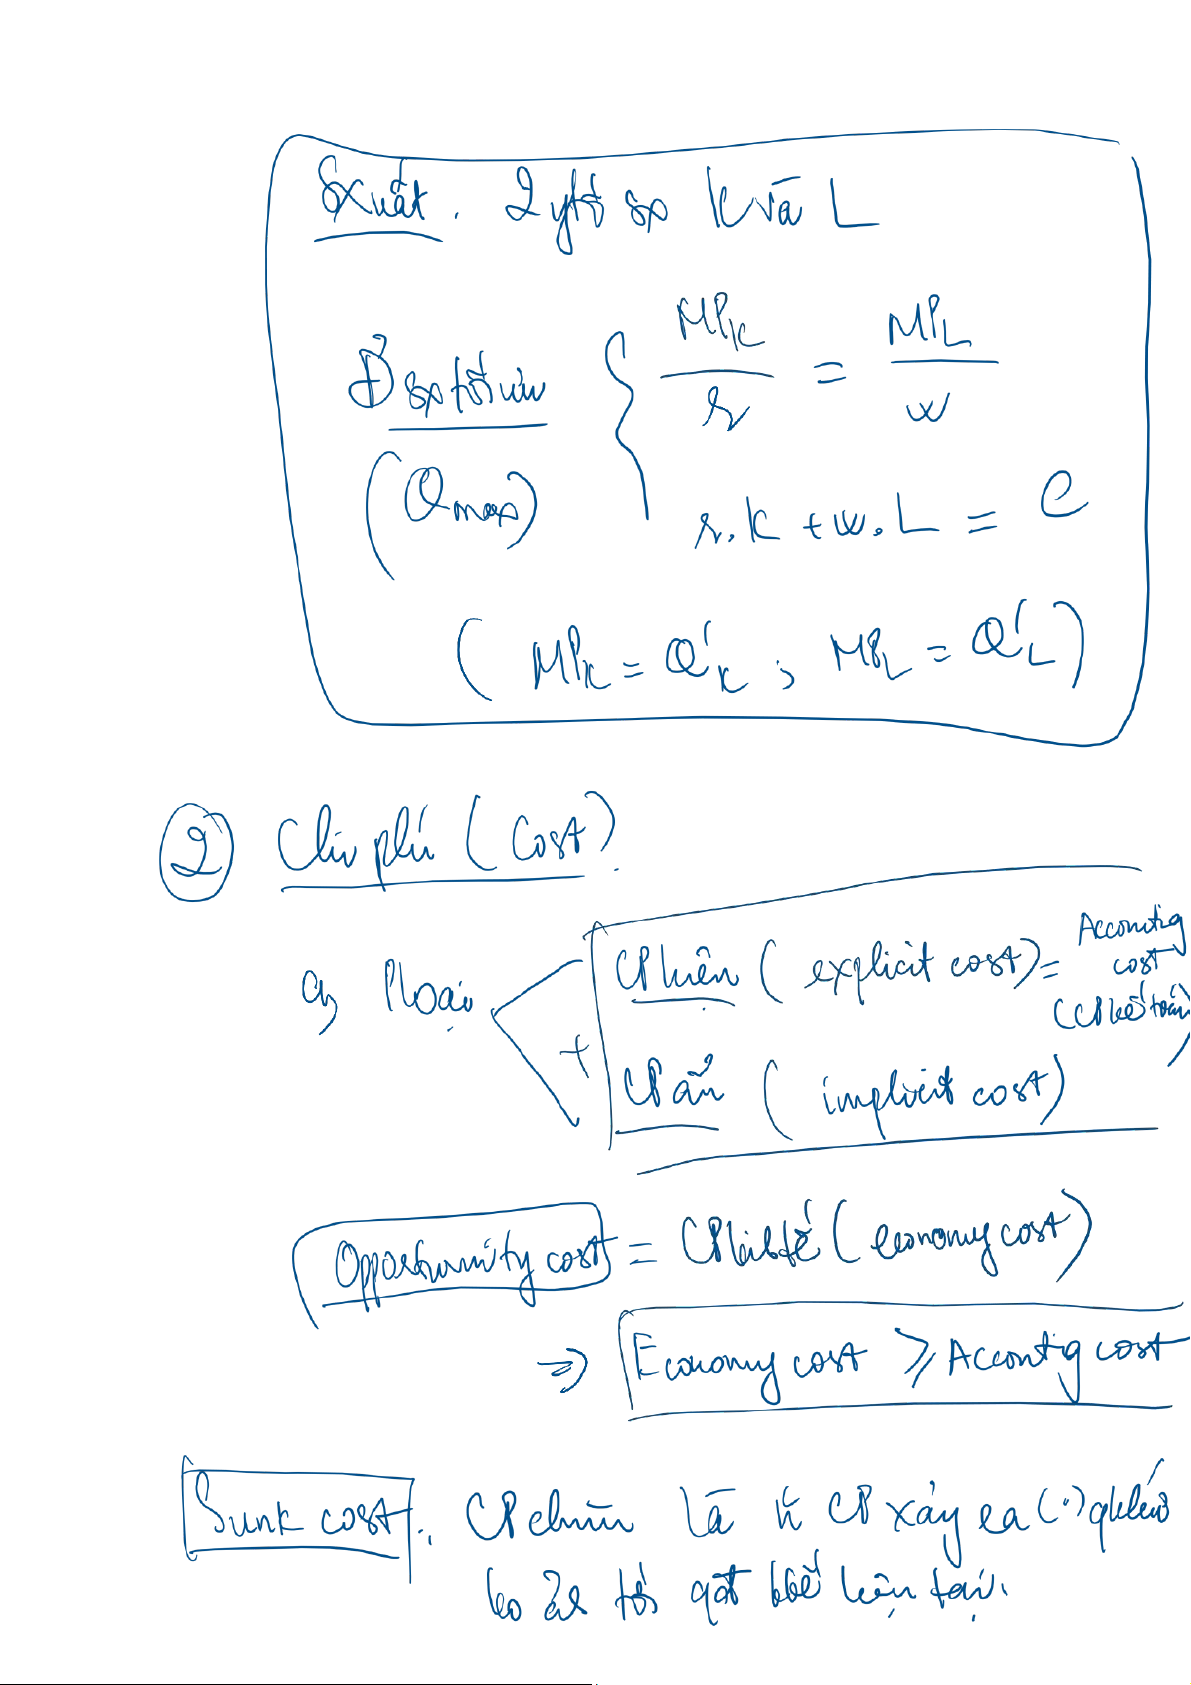 SXuất. 2 ytố sx K và L
Để sx tối ưu { MPK / r = MPL / w
(Qmax) r.K + w.L = C
( MPK = Q'K ; MPL = Q'L )
② Chi phí (Cost).
a, Ploại
CP hiện ( explicit cost) = Accontig cost (CP kế toán)
+
CP ẩn ( implicit cost)
Opportunity cost = CP kinh tế (economy cost)
=> Economy cost ⩾ Accontig cost
Sunk cost : CP chìm là CP xảy ra (.) qkhứ
ko ả tới qđ hiện tại.